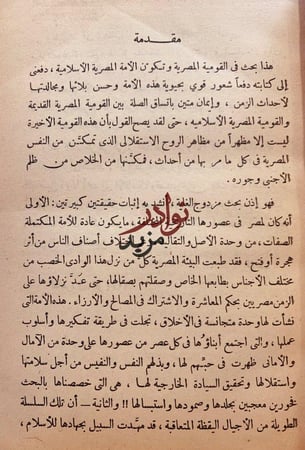 مقدمة
هذا بحث فى القومية المصرية وتكوّن الأمة المصرية الاسلامية ، دفعنى
إلى كتابته دفعاً شعور قوى بحيوية هذه الأمة وحسن بلائها ومجالدتها
لأحداث الزمن ، وإيمان متين باتساق الصلة بين القومية المصرية القديمة
والقومية المصرية الاسلاميه ، حتى لقد يصح القول بأن هذه القومية الأخيرة
ليست إلا مظهراً من مظاهر الروح الاستقلالى الذى تمكّن من النفس
المصرية فى كل ما مر بها من أحداث ، فمكّنها من الخلاص من ظلم
الأجنبى وجوره .
فهو إذن بحث مزدوج الغاية إثبات حقيقتين كبيرتين : الأولى
أنه كان لمصر فى عصورها ما يكون عادة للأمة المكتملة
الصفات ، من وحدة الأصل والتقاليد اختلاف أصناف الناس من أثر
هجرة أو فتح ، فقد طبعت البيئة المصرية كل من نزل هذا الوادى الخصب من
مختلف الأجناس بطابعها الخاص وصقلتهم بصقالها ، حتى عدّ نزلاؤها على
الزمن مصريين بحكم المعاشرة والاشتراك فى المصالح والأرزاء . هذه الأمة التى
نشأت لها وحدة متجانسة فى الأخلاق ، تجلت فى طريقة تفكيرها وأسلوب
عملها ، والتى اجتمع أبناؤها فى كل عصر من عصورها على وحدة من الآمال
والأمانى ظهرت فى حبهم لها ، وبذلهم النفس والنفيس من أجل سلامتها
واستقلالها وتحقيق السيادة الخارجية لها ، هى التى خصصناها بالبحث
فخورين معجبين بجلدها وصمودها واستبسالها !! والثانية – أن تلك السلسلة
الطويلة من الأجيال اليقظة المتعاقبة ، قد مهدت السبيل بجهادها للأسلام ،
نوادر
مزيد